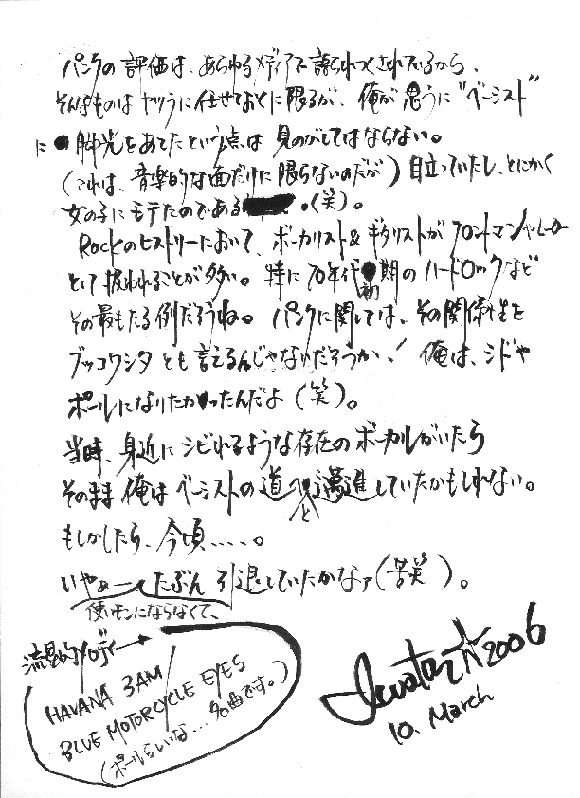 パンクの評価は、あらゆるメディアで語られつくされているから、
そんなものはヤツラに任せておくに限るが、俺が思うに"ベーシスト"
に脚光をあてたという点は見のがしてはならない。
(これは、音楽的な面だけに限らないのだが)目立っていたし、とにかく
女の子にモテたのである。(笑)。
Rockのヒストリーにおいて、ボーカリスト&ギタリストがフロントマンやリーダー
として扱われることが多い。特に70年代初期のハードロックなど
その最もたる例だろうね。パンクに関しては、その関係性を
ブッコワシタとも言えるんじゃないだろうか！俺は、シドや
ポールになりたかったんだよ(笑)。
当時、身近にシビれるような存在のボーカルがいたら
そのまま俺はベーシストの道へと邁進していたかもしれない。
もしかしたら、今頃.....。
いやぁー、使いモンにならなくて、たぶん引退していたかなァ(苦笑)。
流星的メロディー→
HAVANA 3AM
BLUE MOTORCYCLE EYES
(ポールもいいな...名曲です。)
2006
10. March